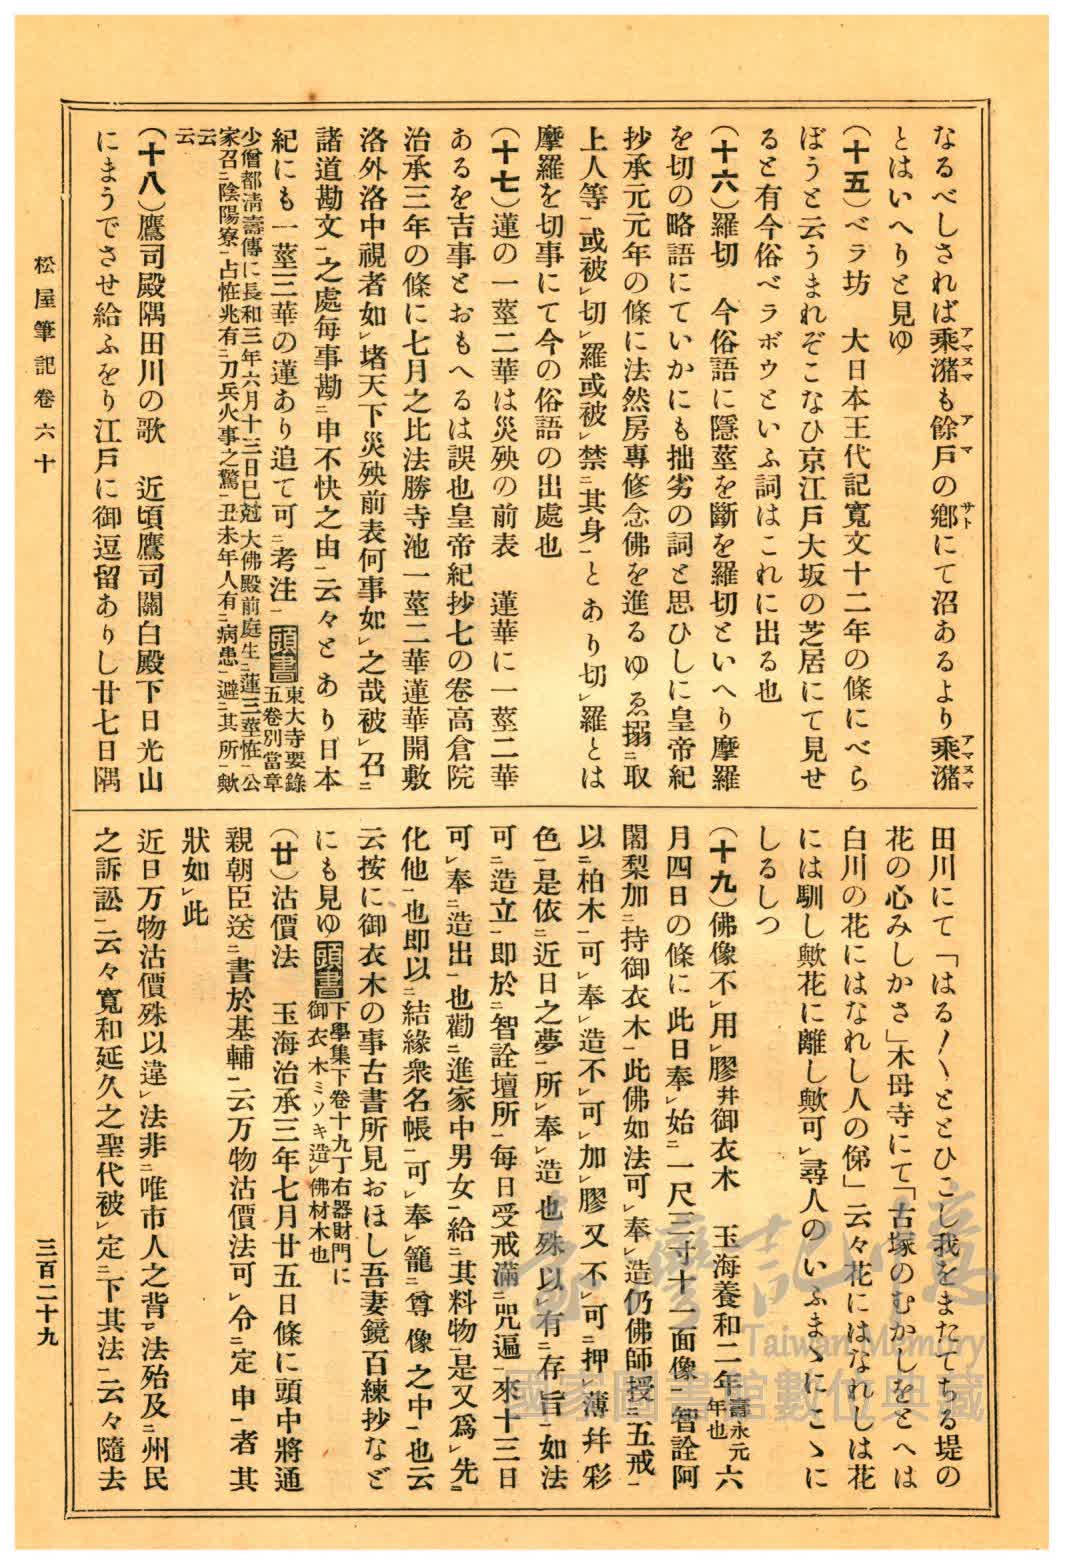 なるべしされば乘潴も餘戸の鄕にて沼あるより乘潴
アマヌマ
アマ
サト
アマヌマ
とはいへりと見ゆ
(十五)ベラ坊　大日本王代記寬文十二年の條にべら
ぼうと云うまれぞこなひ京江戸大坂の芝居にて見せ
ると有今俗ベラボウといふ詞はこれに出る也
(十六)羅切　今俗語に隱莖を斷を羅切といへり摩羅
を切の略語にていかにも拙劣の詞と思ひしに皇帝紀
抄承元元年の條に法然房專修念佛を進るゆゑ搦ニ取
上人等一或被レ切レ羅或被レ禁ニ其身一とあり切レ羅とは
摩羅を切事にて今の俗語の出處也
(十七)蓮の一莖二華は災殃の前表　蓮華に一莖二華
あるを吉事とおもへるは誤也皇帝紀抄七の卷高倉院
治承三年の條に七月之比法勝寺池一莖二華蓮華開敷
洛外洛中視者如レ堵天下災殃前表何事如レ之哉被レ召ニ
諸道勘文一之處每事勘ニ申不快之由一云々とあり日本
紀にも一莖三華の蓮あり追て可ニ考注一頭書東大寺要錄
五卷別當章
少僧都淸壽傳に長和三年六月十三日巳尅大佛殿前庭生ニ蓮三莖恠一公
家召ニ陰陽寮一占恠兆有ニ刀兵火事之驚一丑未年人有ニ病患一避ニ其所一歟
云云
(十八)鷹司殿隅田川の歌　近頃鷹司關白殿下日光山
にまうでさせ給ふをり江戸に御逗留ありし廿七日隅
田川にて「はる〳〵ととひこし我をまたてちる堤の
花の心みしかさ」木母寺にて「古塚のむかしをとへは
白川の花にはなれし人の俤」云々花にはなれしは花
には馴し歟花に離し歟可レ尋人のいふまゝにこゝに
しるしつ
(十九)佛像不レ用レ膠幷御衣木　玉海養和二年壽永元年也六
月四日の條に此日奉レ始ニ一尺三寸十一面像一智詮阿
闍梨加ニ持御衣木一此佛如法可レ奉レ造仍佛師授ニ五戒一
以ニ柏木一可レ奉レ造不レ可レ加レ膠又不レ可ニ押レ薄幷彩
色一是依ニ近日之夢一所レ奉レ造也殊以レ有ニ存旨一如法
可ニ造立一即於ニ智詮壇所一每日受戒滿ニ咒遍一來十三日
可レ奉ニ造出一也勸ニ進家中男女一給ニ其料物一是又爲レ先ニ
化他一也即以ニ結緣衆名帳一可レ奉レ籠ニ尊像之中一也云
云按に御衣木の事古書所見おほし吾妻鏡百練抄など
にも見ゆ頭書下學集下卷十九丁右器財門に
御衣木ミソキ造レ佛材木也
(廿)沽價法　玉海治承三年七月廿五日條に頭中將通
親朝臣送ニ書於基輔一云万物沽價法可レ令ニ定申一者其
狀如レ此
近日万物沽價殊以違レ法非ニ唯市人之背レ法殆及ニ州民
之訴訟一云々寬和延久之聖代被レ定ニ下其法一云々隨去
松屋筆記卷六十
三百二十九
臺灣記憶
Taiwan Memory
國家圖書館數位典藏